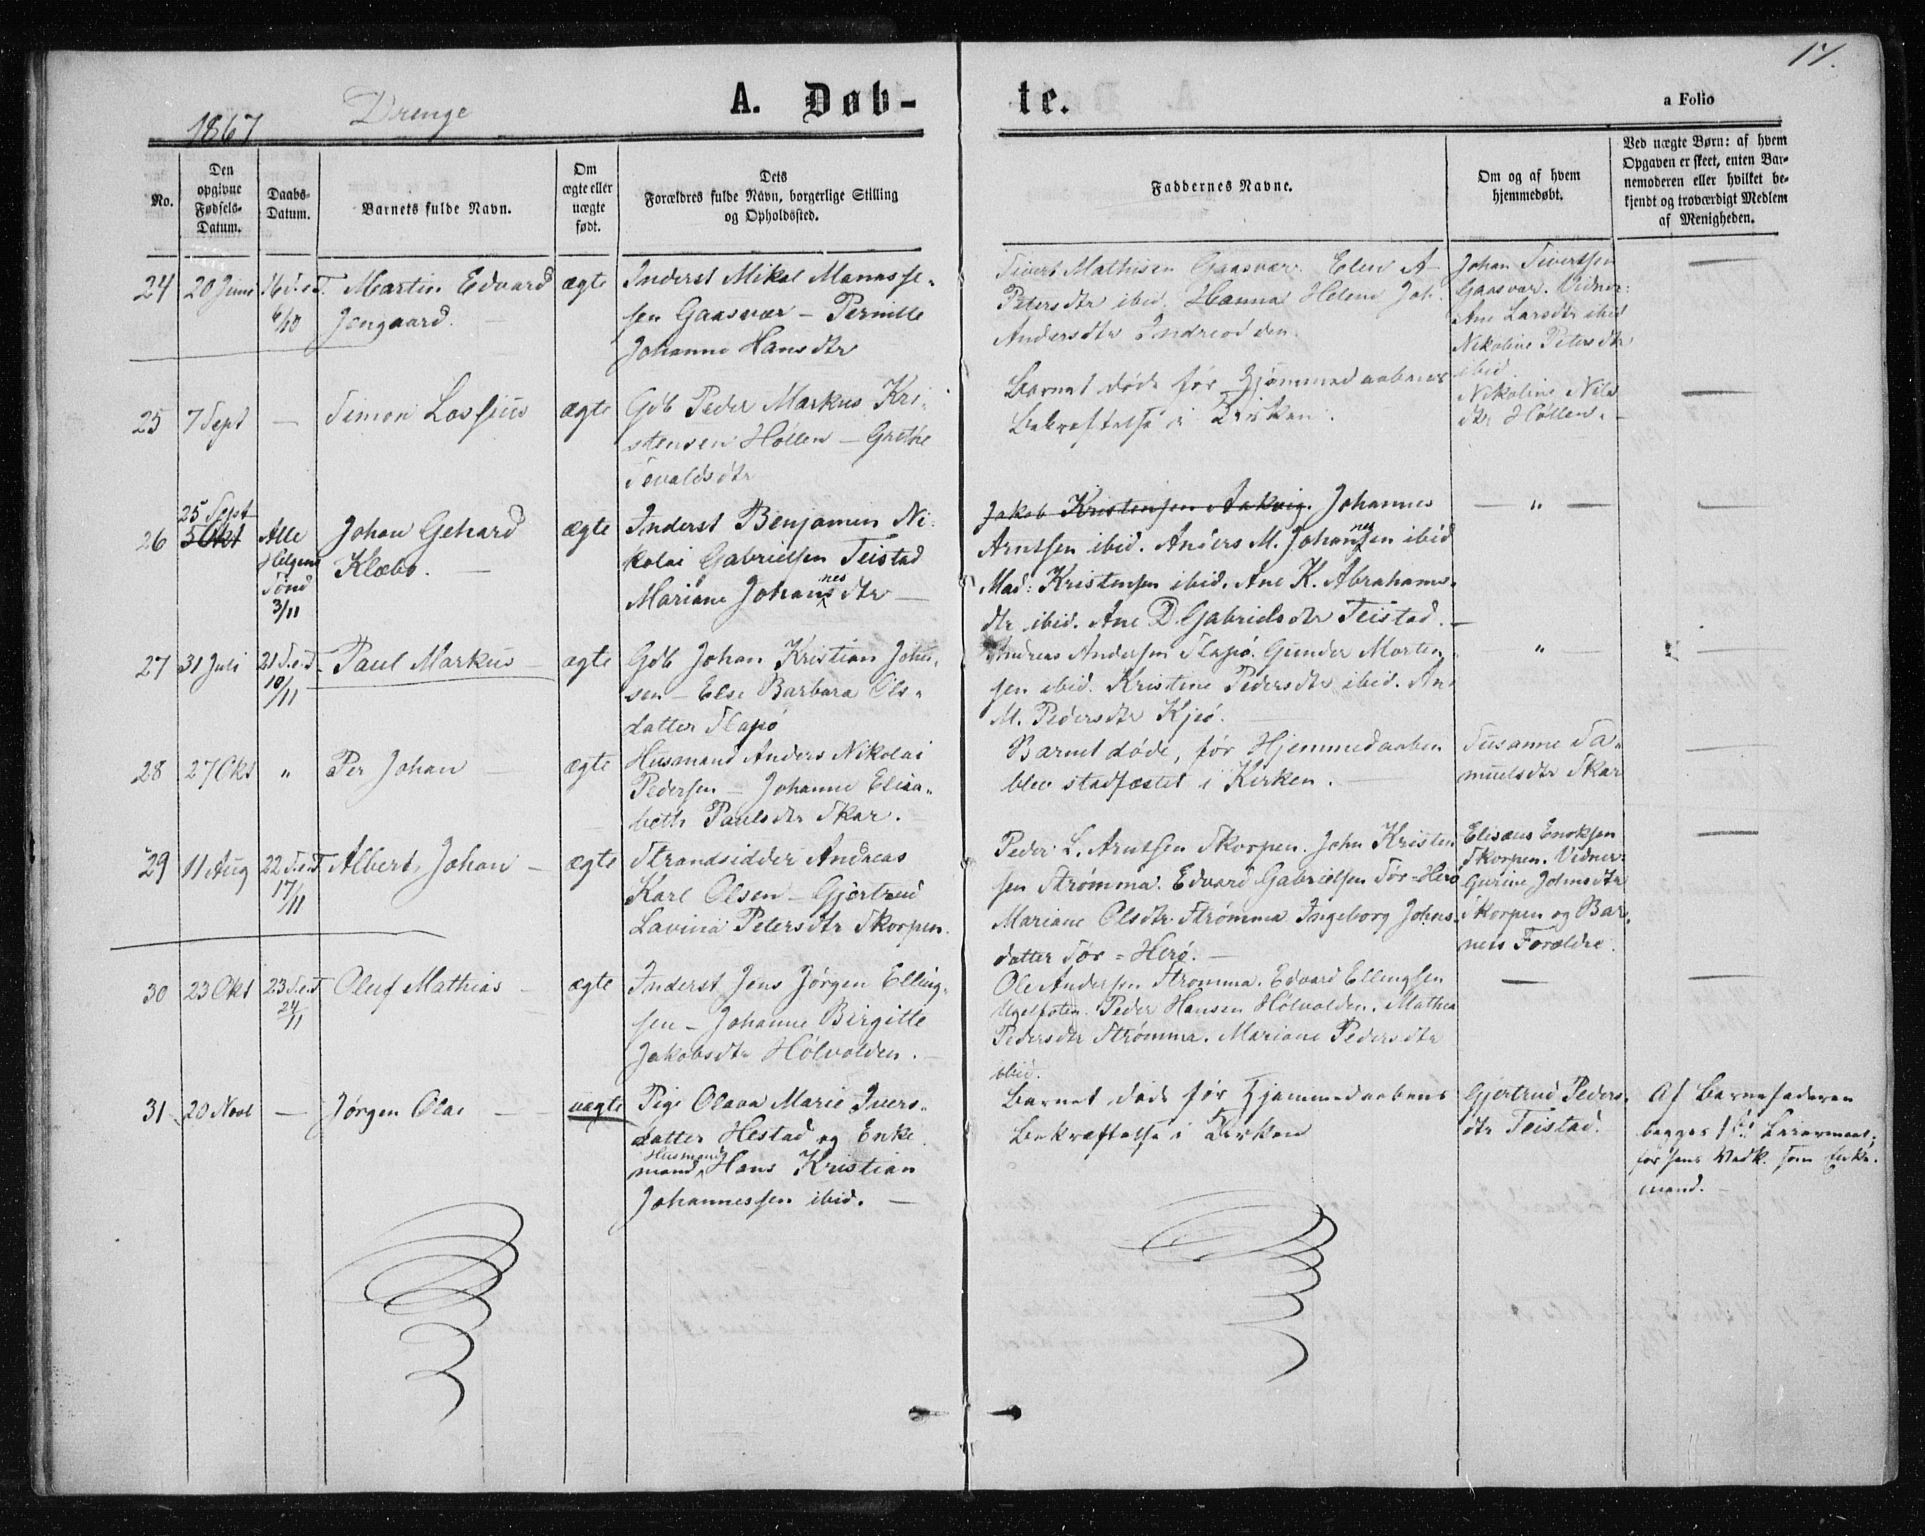 17.
1867 Drenge A. Døb- te. a Folio
No.
Den
opgivne
Fødsels-
Datum.
Daabs-
Datum.
Barnets fulde Navn.
Om
ægte eller
uægte
født.
Dets
Forældres fulde Navn, borgerlige Stilling
og Opholdssted.
Faddernes Navne.
Om og af hvem
hjemmedøbt.
Ved uægte Børn: af hvem
Opgaven er skeet, enten Bar-
nemoderen eller hvilket be-
kjendt og troværdigt Medlem
af Menigheden.
24
20 Juni
16 S. e. T.
6/10
Martin Edvard
Jengaard. —
ægte
Inderst Mikal Manasse-
sen Gaasvær – Pernille
Johanne Hansdtr
Sivert Mathisen Gaasvær. Elen A
Petersdtr ibid. Hanna Helene Joh.
Andersdtr Indreodden.
Johan Sivertsen
Gaasvær. Vidner:
Ane Larsdtr ibid
Nikoline Petersdtr
ibid.
—
25
7 Sept
—
Simon Lossius
ægte
Gdb Peder Markus Kri-
stensen Höllen – Grethe
Sevaldsdtr
Barnet døde før Hjemmedaabens
Bekræftelse i Kirken.
Nikoline Nils
dtr Höllen. –
—
26
25 Sept
5 Okt
Alle
Helgens
Sønd
3/11
Johan Gehard
Klæbo. —
ægte
Inderst Benjamin Ni-
kolai Gabrielsen Teistad
Mariane Johannesdtr —
Jakob Kristensen Aakvig. Johannes
Arntsen ibid. Anders M. Johannesen ibid
Mad: Kristensen ibid. Ane K. Abrahams-
dtr ibid. Ane D. Gabrielsdtr Teistad. –
— " —
—
27
31 Juli
21 S. e. T
10/11
Paul Markus —
ægte
Gdb Johan Kristian John-
sen – Else Barbara Ols-
datter Slapö
Andreas Andersen Slapö. Gunder Morten
sen ibid. Kristine Pedersdtr ibid. An
M. Pedersdtr Kjeö. —
" —
—
28
27 Okt
"
Per Johan —
ægte
Husmand Anders Nikolai
Pedersen – Johanne Elisa-
beth Paulsdtr Skar.
Barnet døde, før Hjemmedaaben
blev stadfæstet i Kirken. —
Susanne Sa-
muelsdtr Skar
—
29
11 Aug
22 S. e. T
17/11
Albert Johan —
ægte
Strandsidder Andreas
Karl Olsen – Gjertrud
Lavina Petersdtr Skorpen.
Peder L. Arntsen Skorpen. John Kristen
sen Strømma. Edvard Gabrielsen Sör-Herö
Mariane Olsdtr Strømma Ingeborg Johns-
datter Sör-Herö. —
Elisæus Enoksen
Skorpen. Vidner:
Gurine Johnsdtr
Skorpen og Bar-
nets Forældre.
—
30
23 Okt
23 S. e. T
24/11
Oluf Mathias —
ægte
Inderst Jens Jørgen Elling-
sen – Johanne Birgitte
Jakobsdtr Hölvolden. —
Ole Andersen Strømma. Edvard Ellingsen
Peder Hansen Hölvolden. Mathea
Pedersdtr Strømma. Mariane Pedersdtr
ibid.
—
—
31
20 Novb
—
Jørgen Olai —
uægte
Pige Olava Marie Ivers-
datter Hestad og Enke
mand, Husmand Hans Kristian
Johannessen ibid. —
Barnet døde før Hjemmedaabens
Bekræftelse i Kirken
Gjertrud Peders-
dtr Teistad.
Af Barnefaderen
begges 1ste Leiermaal;
for hans Vedk. som Enke-
mand. –